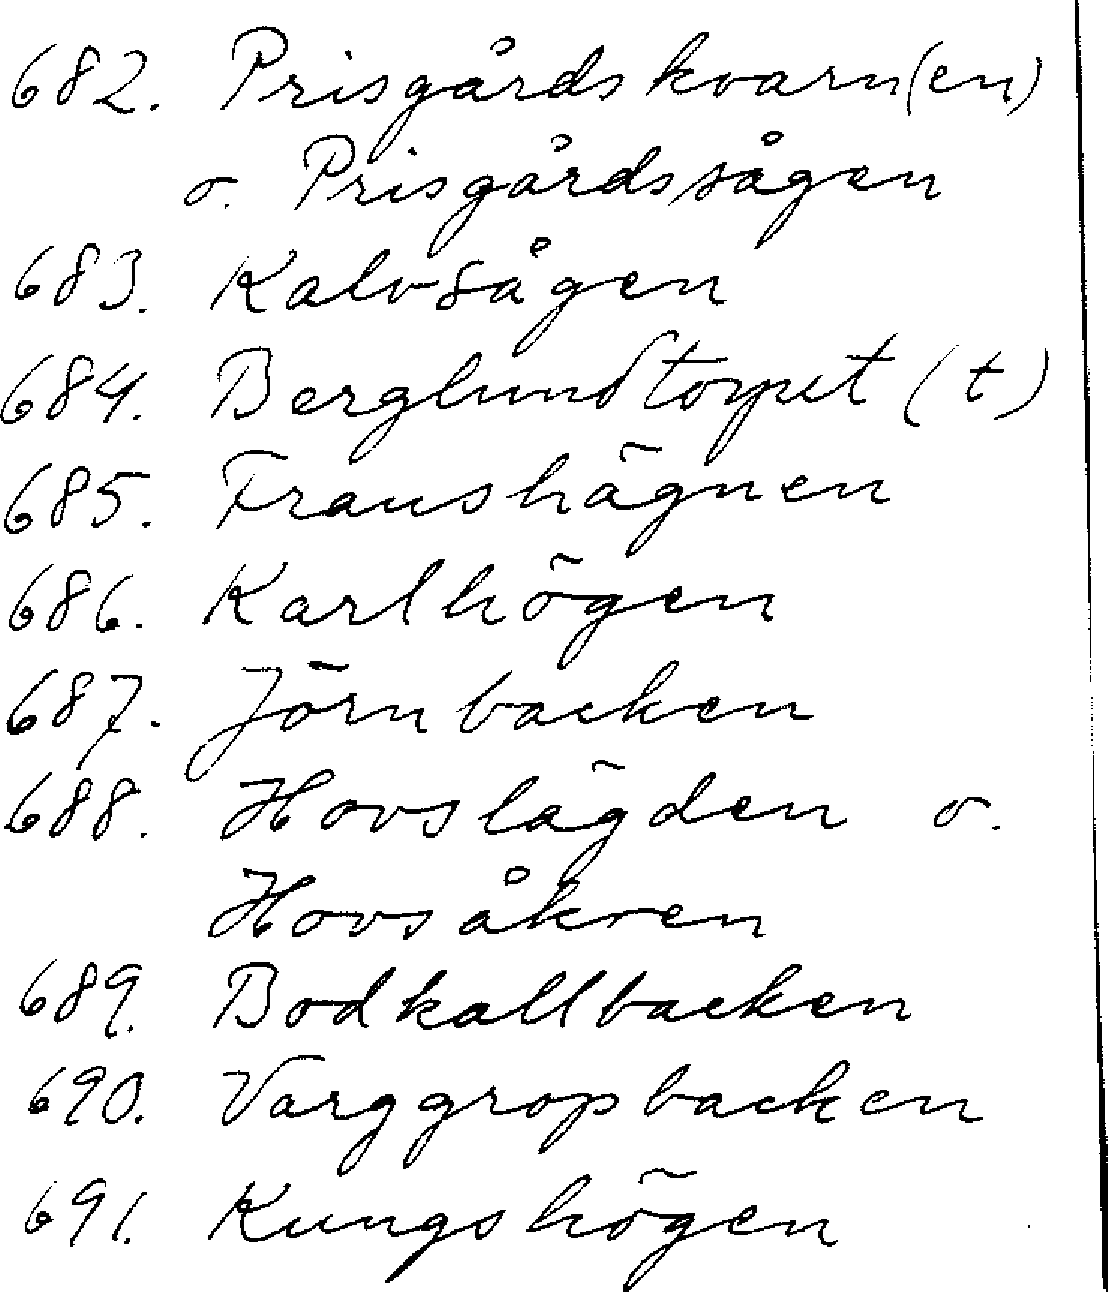 682. Prisgårdskvarn(en)
o. Prisgårdssågen
683. Kalvsågen
684. Berglundtorpet (t)
685. Franshägnen
686. Karlhögen
687. Jörnbacken
688. Hovslägden o.
Hovsåkren
689. Bodkallbacken
690. Varggropbacken
691. Kungshögen